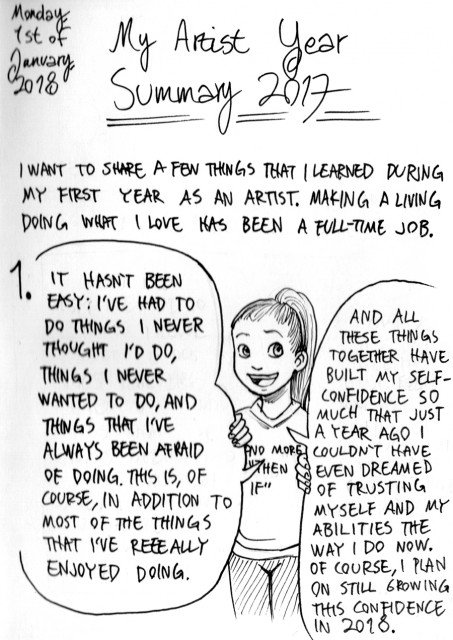 Monday,
1st of
January,
2018
My Artist Year
Summary 2017
I WANT TO SHARE A FEW THINGS THAT I LEARNED DURING
MY FIRST YEAR AS AN ARTIST. MAKING A LIVING
DOING WHAT I LOVE HAS BEEN A FULL-TIME JOB.
1.
IT HASN'T BEEN
EASY: I'VE HAD TO
DO THINGS I NEVER
THOUGHT I'D DO,
THINGS I NEVER
WANTED TO DO, AND
THINGS THAT I'VE
ALWAYS BEEN AFRAID
OF DOING. THIS IS, OF
COURSE, IN ADDITION TO
MOST OF THE THINGS
THAT I'VE REEEALLY
ENJOYED DOING.
NO MORE
THEN
IF"
AND ALL
THESE THINGS
TOGETHER HAVE
BUILT MY SELF-
CONFIDENCE SO
MUCH THAT JUST
A YEAR AGO I
COULDN'T HAVE
EVEN DREAMED
OF TRUSTING
MYSELF AND MY
ABILITIES THE
WAY I DO NOW.
OF COURSE, I PLAN
ON STILL GROWING
THIS CONFIDENCE
IN 2018.